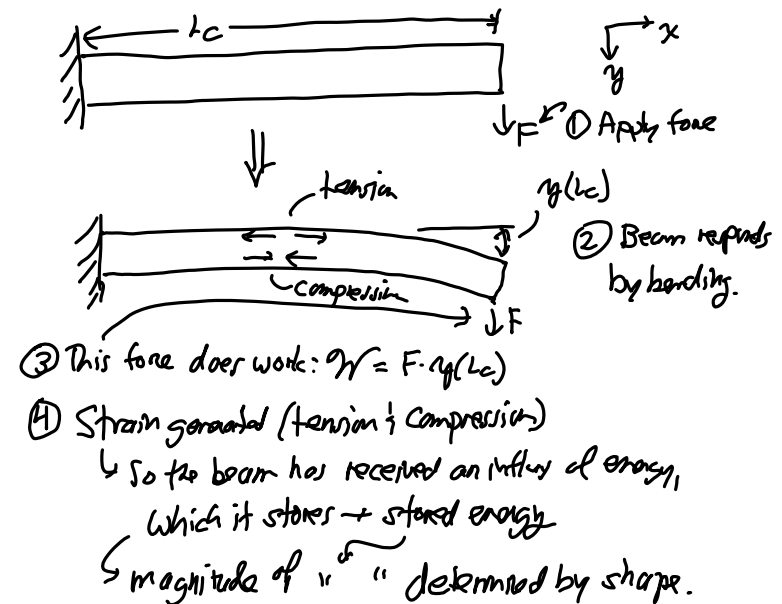 Lc
x
y
F ① Apply force
tension
y(Lc)
② Beam responds
by bending.
compression
F
③ This force does work: W = F·y(Lc)
④ Strain generated (tension & compression)
↳ So the beam has received an influx of energy,
which it stores → stored energy
↳ magnitude of " " determined by shape.